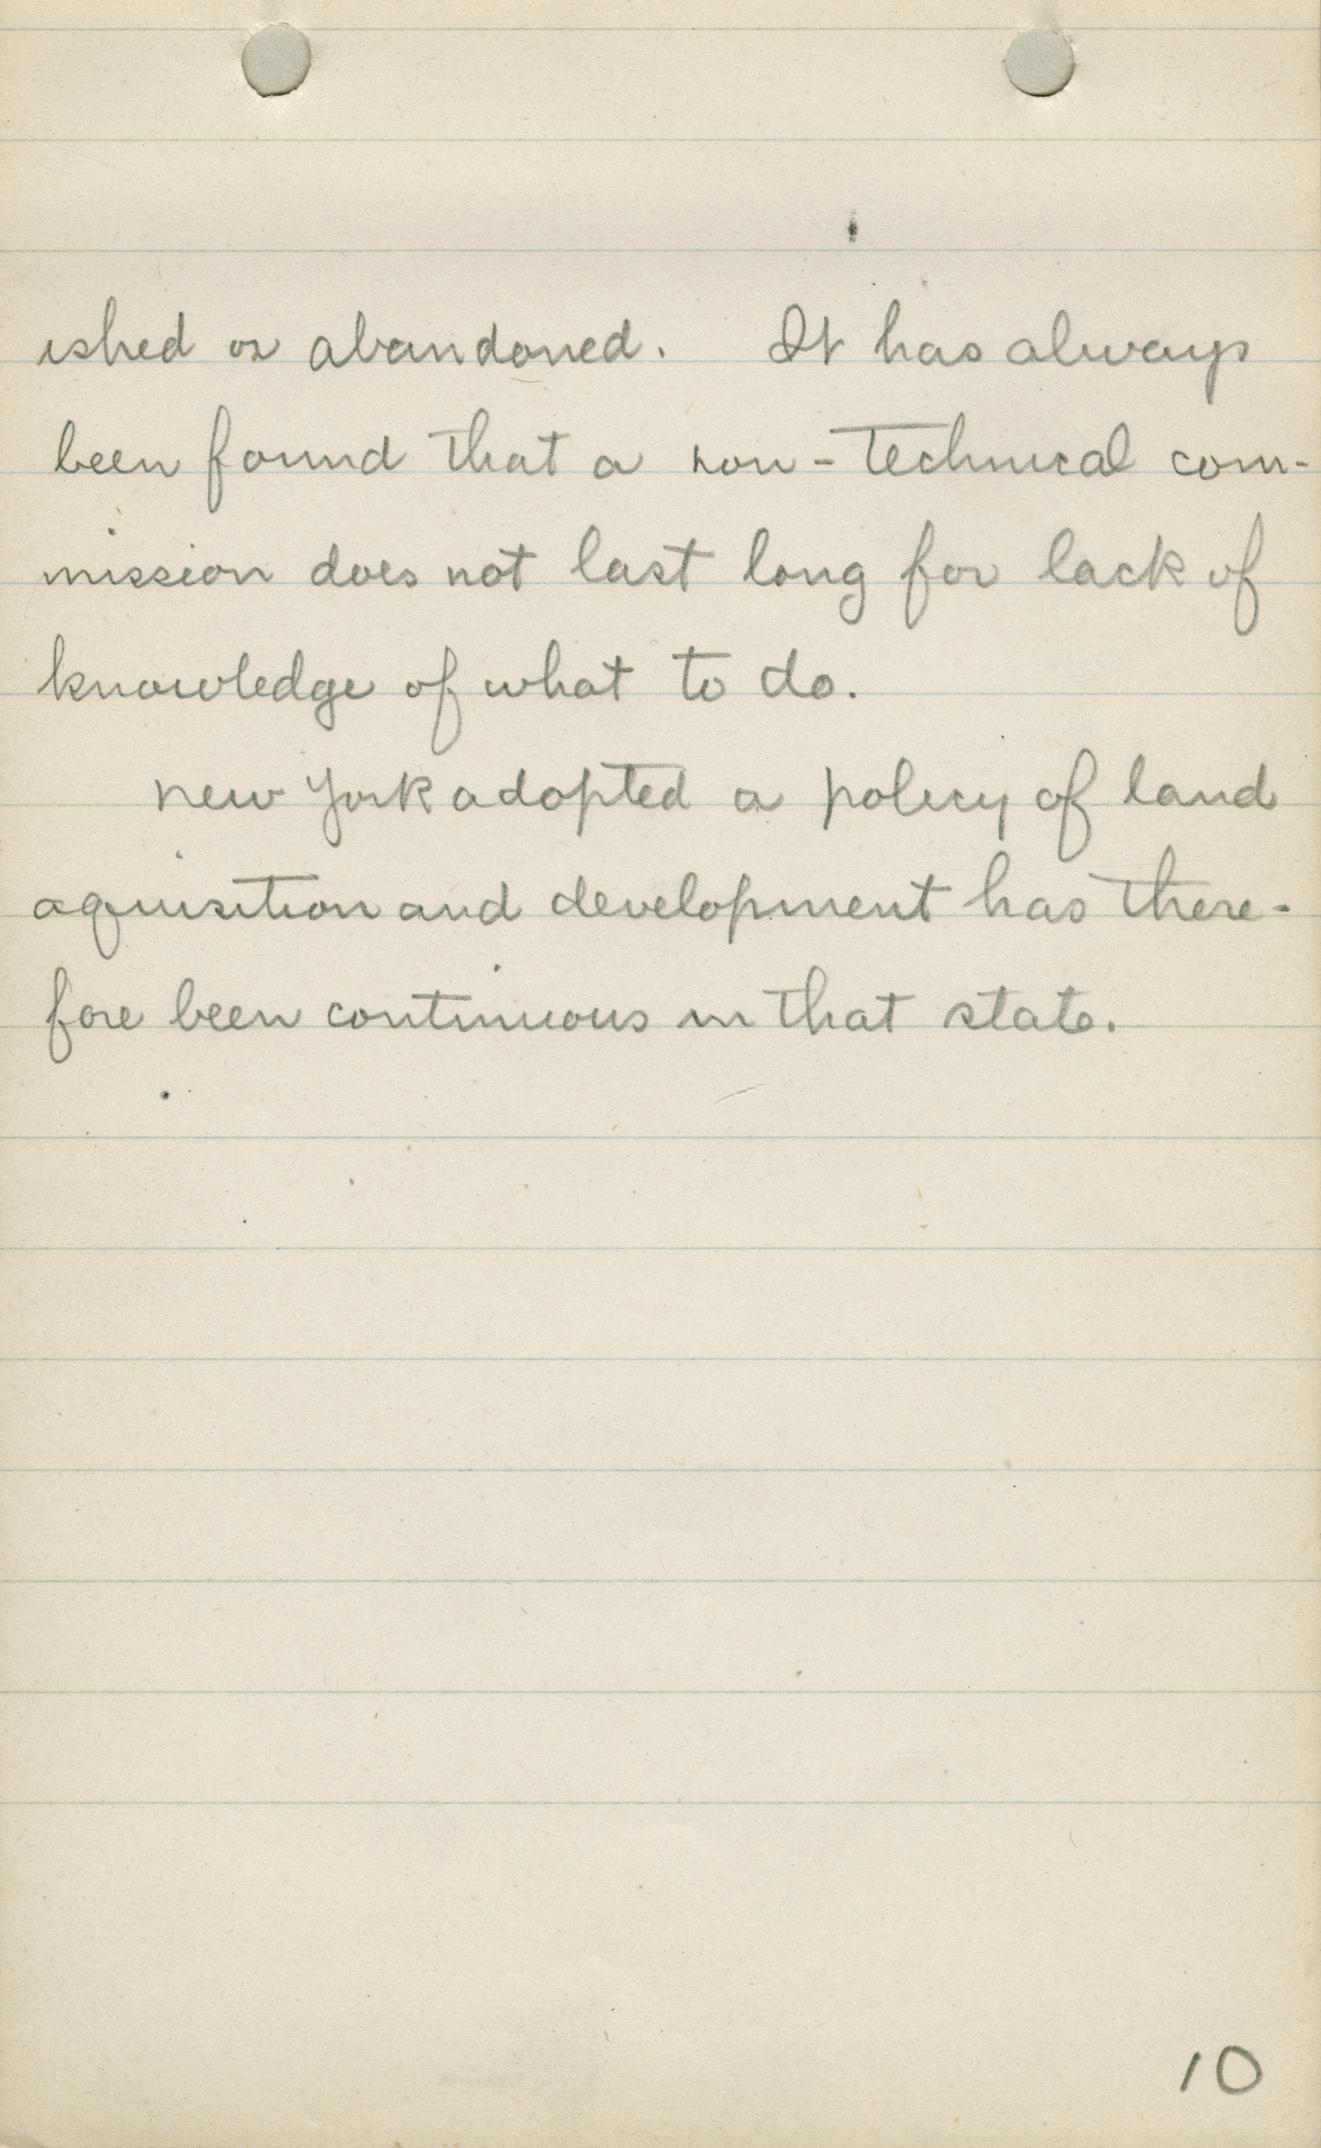 ished or abandoned. It has always
been found that a non-technical com-
mission does not last long for lack of
knowledge of what to do.
New York adopted a policy of land
aquisition and development has there-
fore been continuous in that state.
10